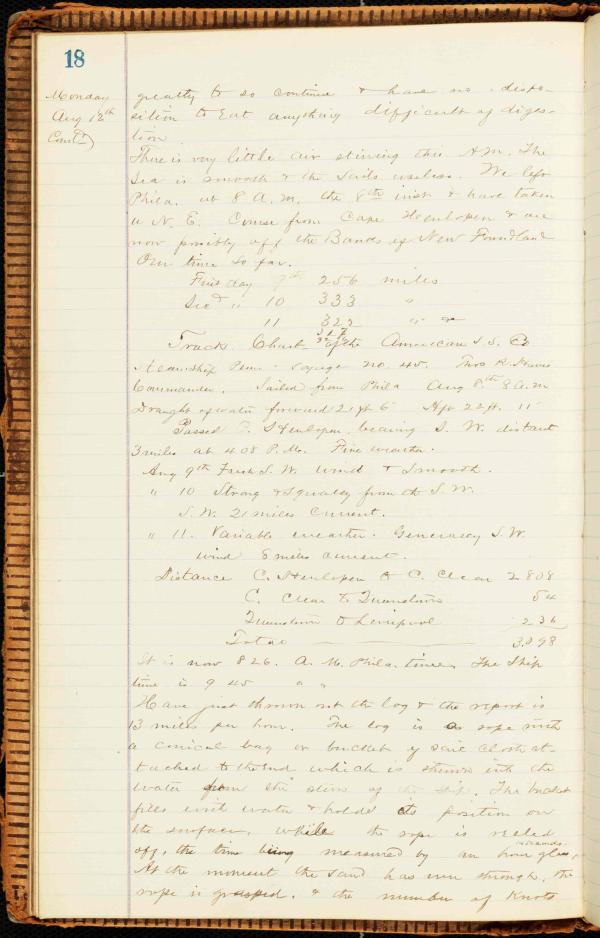 18
Monday
Aug 12th
Contd)
greatly to so continue & have no dispo-
sition to Eat anything difficult of diges-
tion
There is very little air stirring this A.M. The
Sea is smooth & the Sails useless. We left
Phila. at 8 A.M. the 8th inst & have taken
a N. E. Course from Cape Henlopen & are
now possibly off the Banks of New Foundland
Our time so far.
First day 9th 256 miles
Secd " 10 333 "
11 322 " "
Track Chart of the American S.S. Co
Steamship Penn. Voyage no. 45. Thos R.
Commander. Sailed from Phila Aug 8th 8 a.m
Draught of water forward 21 ft 6 Aft 22 ft. 11
Passed C. Henlopen bearing S. W. distant
3 miles at 4 08 P.M. Fine weather.
Aug 9th Fresh S. W. wind & Smooth.
" 10 Strong & Squally from the S.W.
S.W. 21 miles Current.
" 11. Variable weather. Generally S.W.
wind 8 miles current.
Distance C. Henlopen to C. Clear 2808
C. Clear to Queenstown 54
Queenstown to Liverpool 236
Total 3098
It is now 8 26. A. M. Phila. time. The Ship
time is 9 45 " "
Have just thrown out the log & the report is
13 miles per hour. The log is a rope with
a conical bag or bucket of sail cloth at-
tached to the end which is thrown into the
water from the stern of the ship. The bucket
fills with water & holds its position on
the surface, while the rope is reeled
off, the time being measured by an hour glass,
At the moment the sand has run through, the
rope is grasped, & the number of Knots